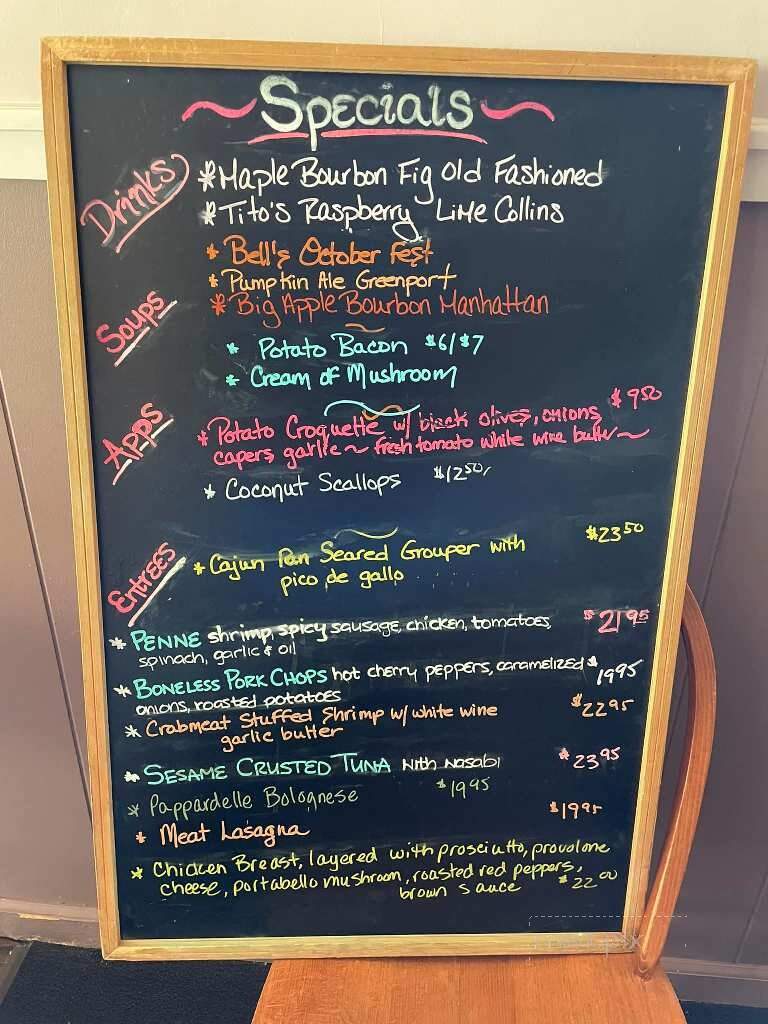 Specials
Drinks
*Maple Bourbon Fig Old Fashioned
*Tito's Raspberry Lime Collins
* Bell's October Fest
* Pumpkin Ale Greenport
*Big Apple Bourbon Manhattan
Soups
* Potato Bacon $6/$7
* Cream of Mushroom
Apps
*Potato Croquette w/ black olives, onions $9.50
capers garlic ~ fresh tomato white wine butter~
* Coconut Scallops $12.50
Entrees
* Cajun Pan Seared Grouper with $23.50
pico de gallo
* PENNE shrimp, spicy sausage, chicken, tomatoes, $21.95
spinach, garlic & oil
* BONELESS PORK CHOPS hot cherry peppers, caramelized $19.95
onions, roasted potatoes
* Crabmeat Stuffed Shrimp w/ white wine $22.95
garlic butter
* SESAME CRUSTED TUNA with wasabi $23.95
* Pappardelle Bolognese $19.95
* Meat Lasagna $19.95
* Chicken Breast, layered with prosciutto, provolone
cheese, portabello mushroom, roasted red peppers,
brown sauce $22.00